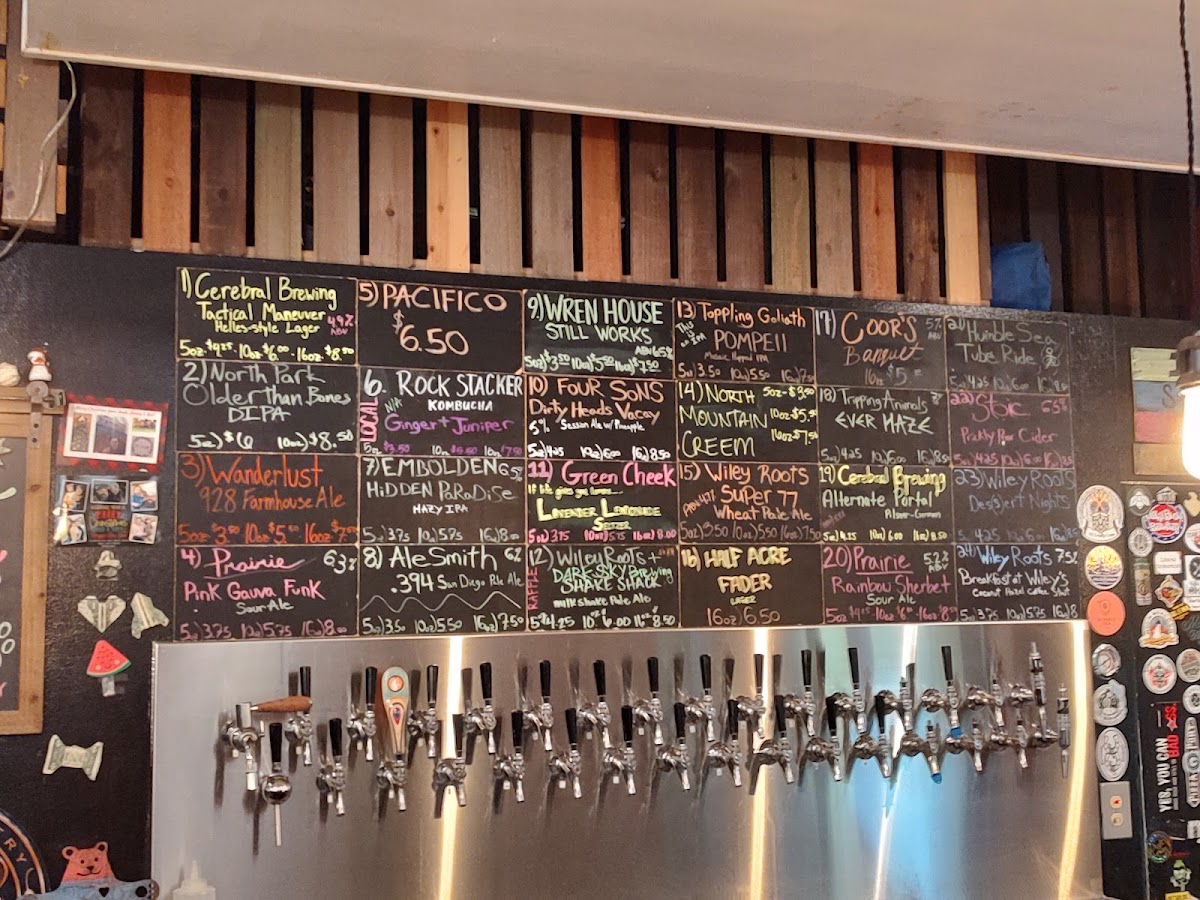 1) Cerebral Brewing
Tactical Maneuver
Helles-style Lager 4.9%
ABV
5oz·$4.25·10oz·$6.00·16oz·$8.50
2) North Park
Older Than Bones
DIPA
5oz) $6 10oz) $8.50
3) Wanderlust
928 Farmhouse Ale
5oz $3.50 10oz $5.50 16oz $7.50
4) Prairie 6.3%
Pink Gauva Funk
Sour Ale
5oz) 3.75 10oz) 5.75 16oz) 8.00
5) PACIFICO
$6.50
LOCAL
6. ROCK STACKER
N/A KOMBUCHA
Ginger + Juniper
5oz $3.50 10oz $5.50 16oz $7.50
7) EMBOLDEN 6.5%
HiDDEN PaRaDiSe
HAZY IPA
5oz) 3.75 10oz) 5.75 16oz) 8.00
8) AleSmith 6%
.394 San Diego Pale Ale
5oz) 3.50 10oz) 5.50 16oz) 7.50
9) WREN HOUSE
STILL WORKS
ABV 6.5%
5oz) $3.50 10oz) $5.50 16oz) $7.50
10) FOUR SONS
Dirty Heads Vacay
6% Session Ale w/ Pineapple
5oz) 4.25 10oz) 6.00 16oz) 8.50
11) Green Cheek
If life gives you lemons...
LAVENDER LEMONADE
SELTZER
5oz) 3.75 10oz) 5.75 16oz) 8.00
RAFFLE
12) Wiley Roots +
DARE SKY Brewing
SHAKE SHACK
milkshake Pale Ale
5oz 4.25 10oz 6.00 16oz 8.50
13) Toppling Goliath
POMPEII
Mosaic Hopped IPA
5oz) 3.50 10oz) 5.50 16oz) 7.50
14) NORTH 5oz-$3.50
MOUNTAIN 10oz-$5.50
CREEM 16oz-$7.50
15) Wiley Roots
Super 77
Wheat Pale Ale
5oz) 3.50 10oz) 5.50 16oz) 7.50
16) HALF ACRE
FADER
LAGER
16oz) 6.50
17) COOR'S 5%
ABV
Banquet
16oz $5
18) Tripping Animals
EVER HAZE
5oz) 4.25 10oz) 6.00 16oz) 8.50
19) Cerebral Brewing
Alternate Portal
Pilsner-German
5oz) 4.25 10oz) 6.00 16oz) 8.50
20) Prairie 5.2%
ABV
Rainbow Sherbet
Sour Ale
5oz $4.25 10oz $6.00 16oz $8.50
21) Humble Sea
Tube Ride
5oz) 4.25 10oz) 6.00 16oz) 8.50
22) Stoic 6.5%
Prickly Pear Cider
5oz) 4.25 10oz) 6.00 16oz) 8.50
23) Wiley Roots
Dessert Nights
5oz) 4.25 10oz) 6.00 16oz) 8.50
24) Wiley Roots 7.5%
Breakfast at Wiley's
Coconut Hazel Coffee Stout
5oz) 3.75 10oz) 5.75 16oz) 8
YES, YOU CAN